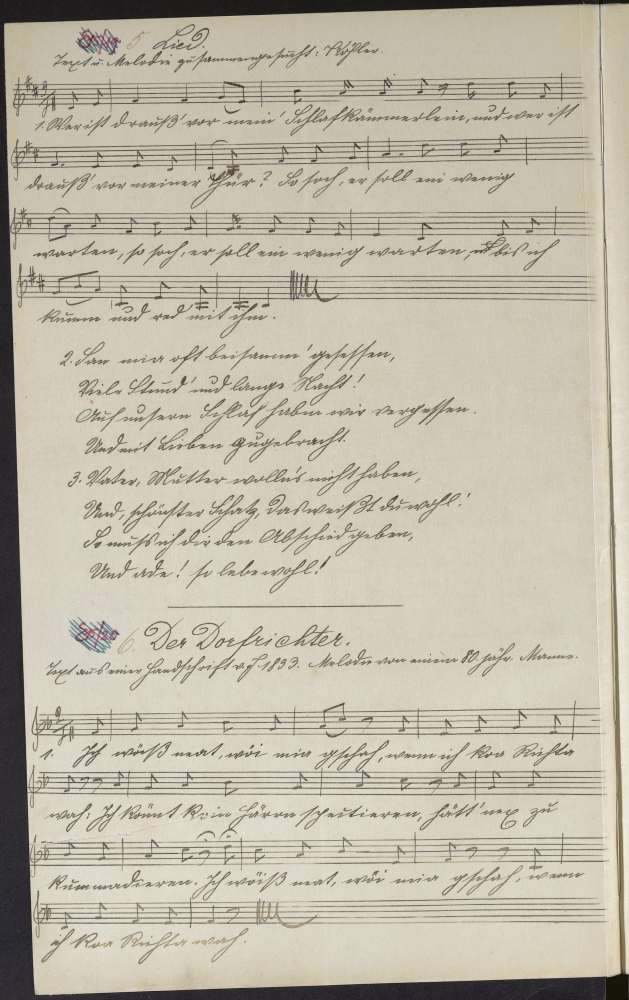 5. Lied.
Text u. Melodie zusammengesucht: Kößler.
1. Wer ist drauß' vor mein' Schlafkämmerlein, und wer ist
drauß' vor meiner Thür? So soch, er soll ein wenig
warten, so soch, er soll ein wenig warten, bis ich
kumm und red mit ihm.
2. San mia oft beisamm' gesessen,
Viele Stund' und lange Nacht!
Auf unsern Schlaf haben wir vergessen.
Und mit Lieben zugebracht.
3. Vater, Mutter wollen's nicht haben,
Und, schönster Schatz, das weißt du wohl!
So muß ich dir den Abschied geben,
Und ade! so lebe wohl!
6. Der Dorfrichter.
Text aus einer Handschrift v. J. 1833. Melodie von einem 80. jähr. Manne.
1. Ich wöiß neat, wöi mia gschah, wenn ich koa Richta
wah: Ich könnt kein Härrn speitieren, hätt' nex zu
kummadieren. Ich wöiß neat, wöi mia gschah, wenn
ich koa Richta wah.